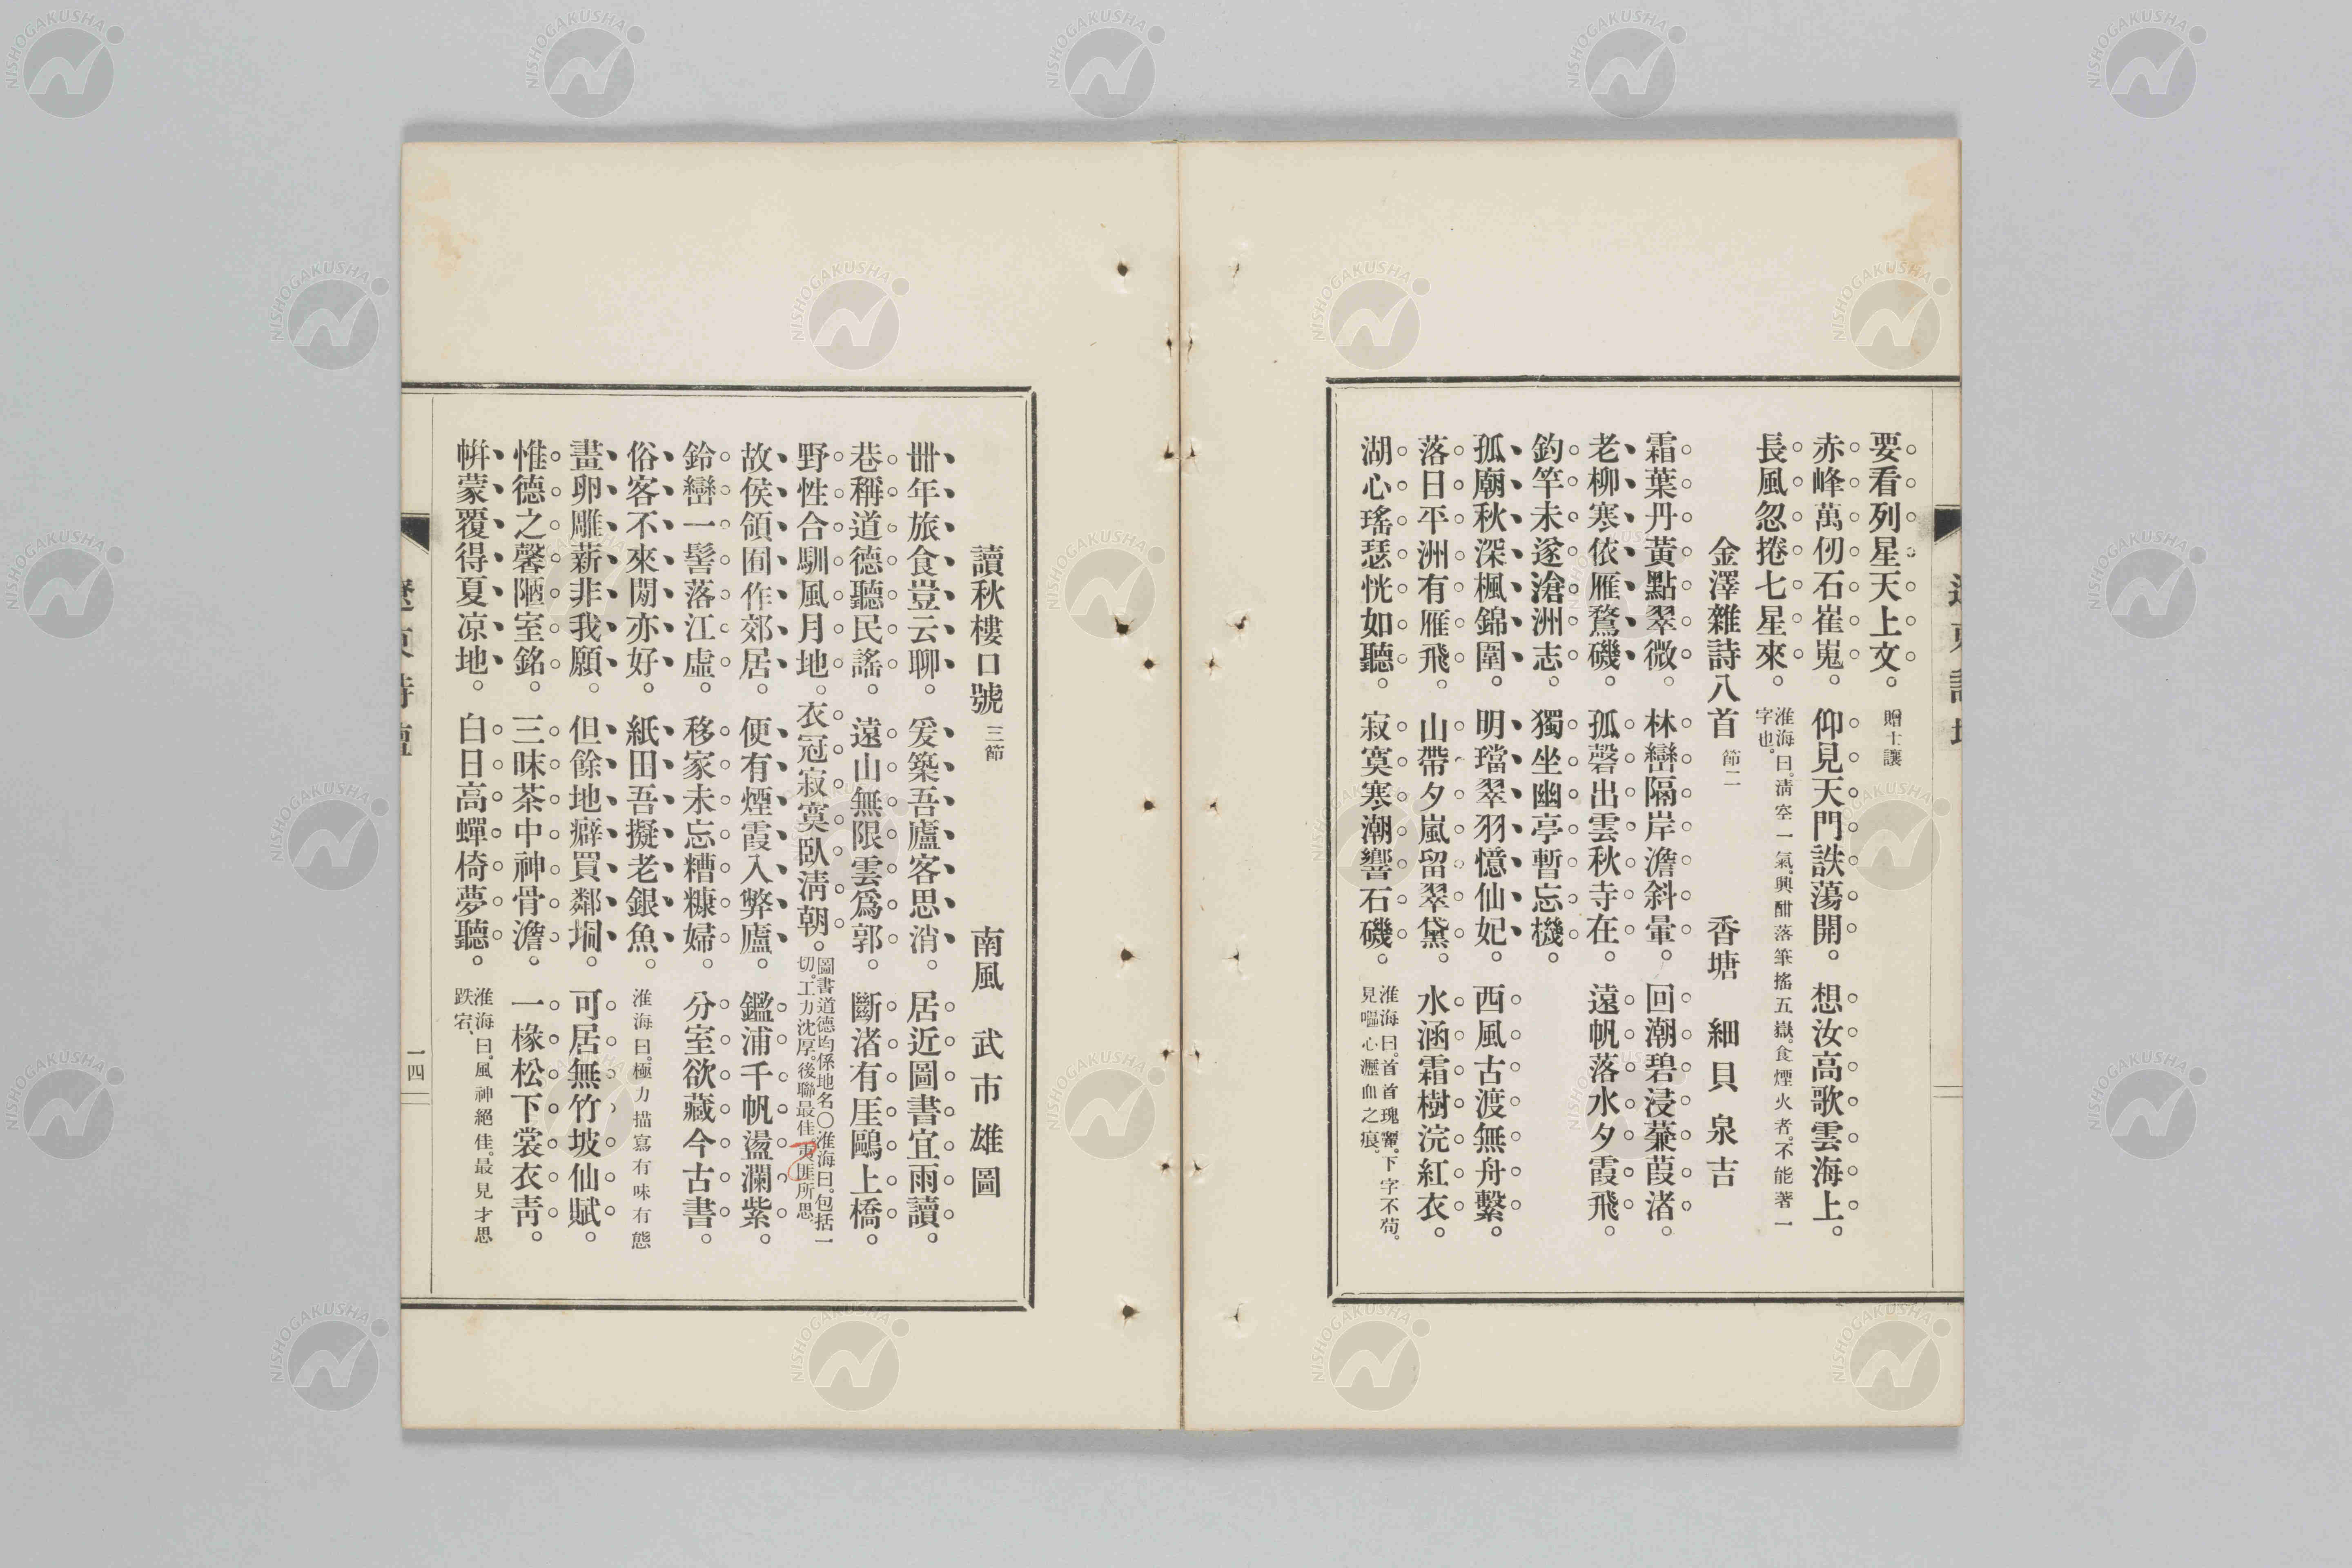 要看列星天上文。贈士讓
赤峰萬仞石崔嵬。仰見天門詄蕩開。想汝高歌雲海上。
長風忽捲七星來。淮海曰。淸空一氣。興酣落筆搖五嶽。食煙火者。不能著一字也。
金澤雜詩八首 節二 香塘 細貝泉吉
霜葉丹黃點翠微。林巒隔岸澹斜暈。回潮碧浸蒹葭渚。
老柳寒依雁鶩磯。孤磬出雲秋寺在。遠帆落水夕霞飛。
釣竿未遂滄洲志。獨坐幽亭暫忘機。
孤廟秋深楓錦圍。明璫翠羽憶仙妃。西風古渡無舟繫。
落日平洲有雁飛。山帶夕嵐留翠黛。水涵霜樹浣紅衣。
湖心瑤瑟恍如聽。寂寞寒潮響石磯。淮海曰。首首瑰麗。下字不苟。見嘔心瀝血之痕。
讀秋樓口號 三節 南風 武市雄圖
卌年旅食豈云聊。爰築吾廬客思消。居近圖書宜雨讀。
巷稱道德聽民謠。遠山無限雲爲郭。斷渚有厓鷗上橋。
野性合馴風月地。衣冠寂寞臥淸朝。圖書道德均係地名〇淮海曰。包括一切。工力沈厚。後聯最佳。夷匪所思
故侯領囿作郊居。便有煙霞入弊廬。鑑浦千帆盪瀾紫。
鈴巒一髻落江虛。移家未忘糟糠婦。分室欲藏今古書。
俗客不來閒亦好。紙田吾擬老銀魚。淮海曰。極力描寫有味有態
畫卵雕薪非我願。但餘地癖買鄰坰。可居無竹坡仙賦。
惟德之馨陋室銘。三昧茶中神骨澹。一椽松下裳衣靑。
帡蒙覆得夏凉地。白日高蟬倚夢聽。淮海曰。風神絕佳。最見才思跌宕、
一四
NISHOGAKUSHA